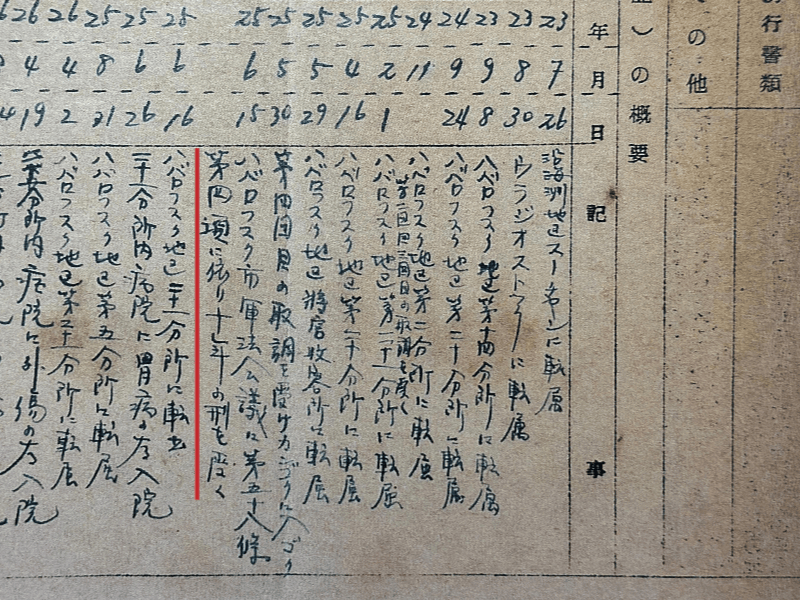 行書類
の他
）の概要
年 月 日 記 事
23 7 26 沿海洲地区スーチャンに転属
23 8 30 ウラジオストックに転属
23 9 8 ハバロフスク地区第十四分所に転属
24 9 24 ハバロフスク地区第二十分所に転属
24 11 ハバロフスク地区第二分所に転属
の取調を受く
25 2 1 ハバロフスク地区第二十一分所に転属
25 4 16 ハバロフスク地区第二十分所に転属
25 5 29 ハバロフスク地区将官收容所に転属
25 5 30 第四回目の取調を受けカンゴクに入ゴク
25 6 15 ハバロフスク市軍法会議に第五十八條
第四項に依り の刑を受く
25 6 16 ハバロフスク地区二十一分所に転出
25 6 26 二十一分所内病院に胃病の為入院
25 8 21 ハバロフスク地区第五分所に転属
26 4 2 ハバロフスク地区第二十一分所に転属
26 4 19 分所内病院に外傷の為入院